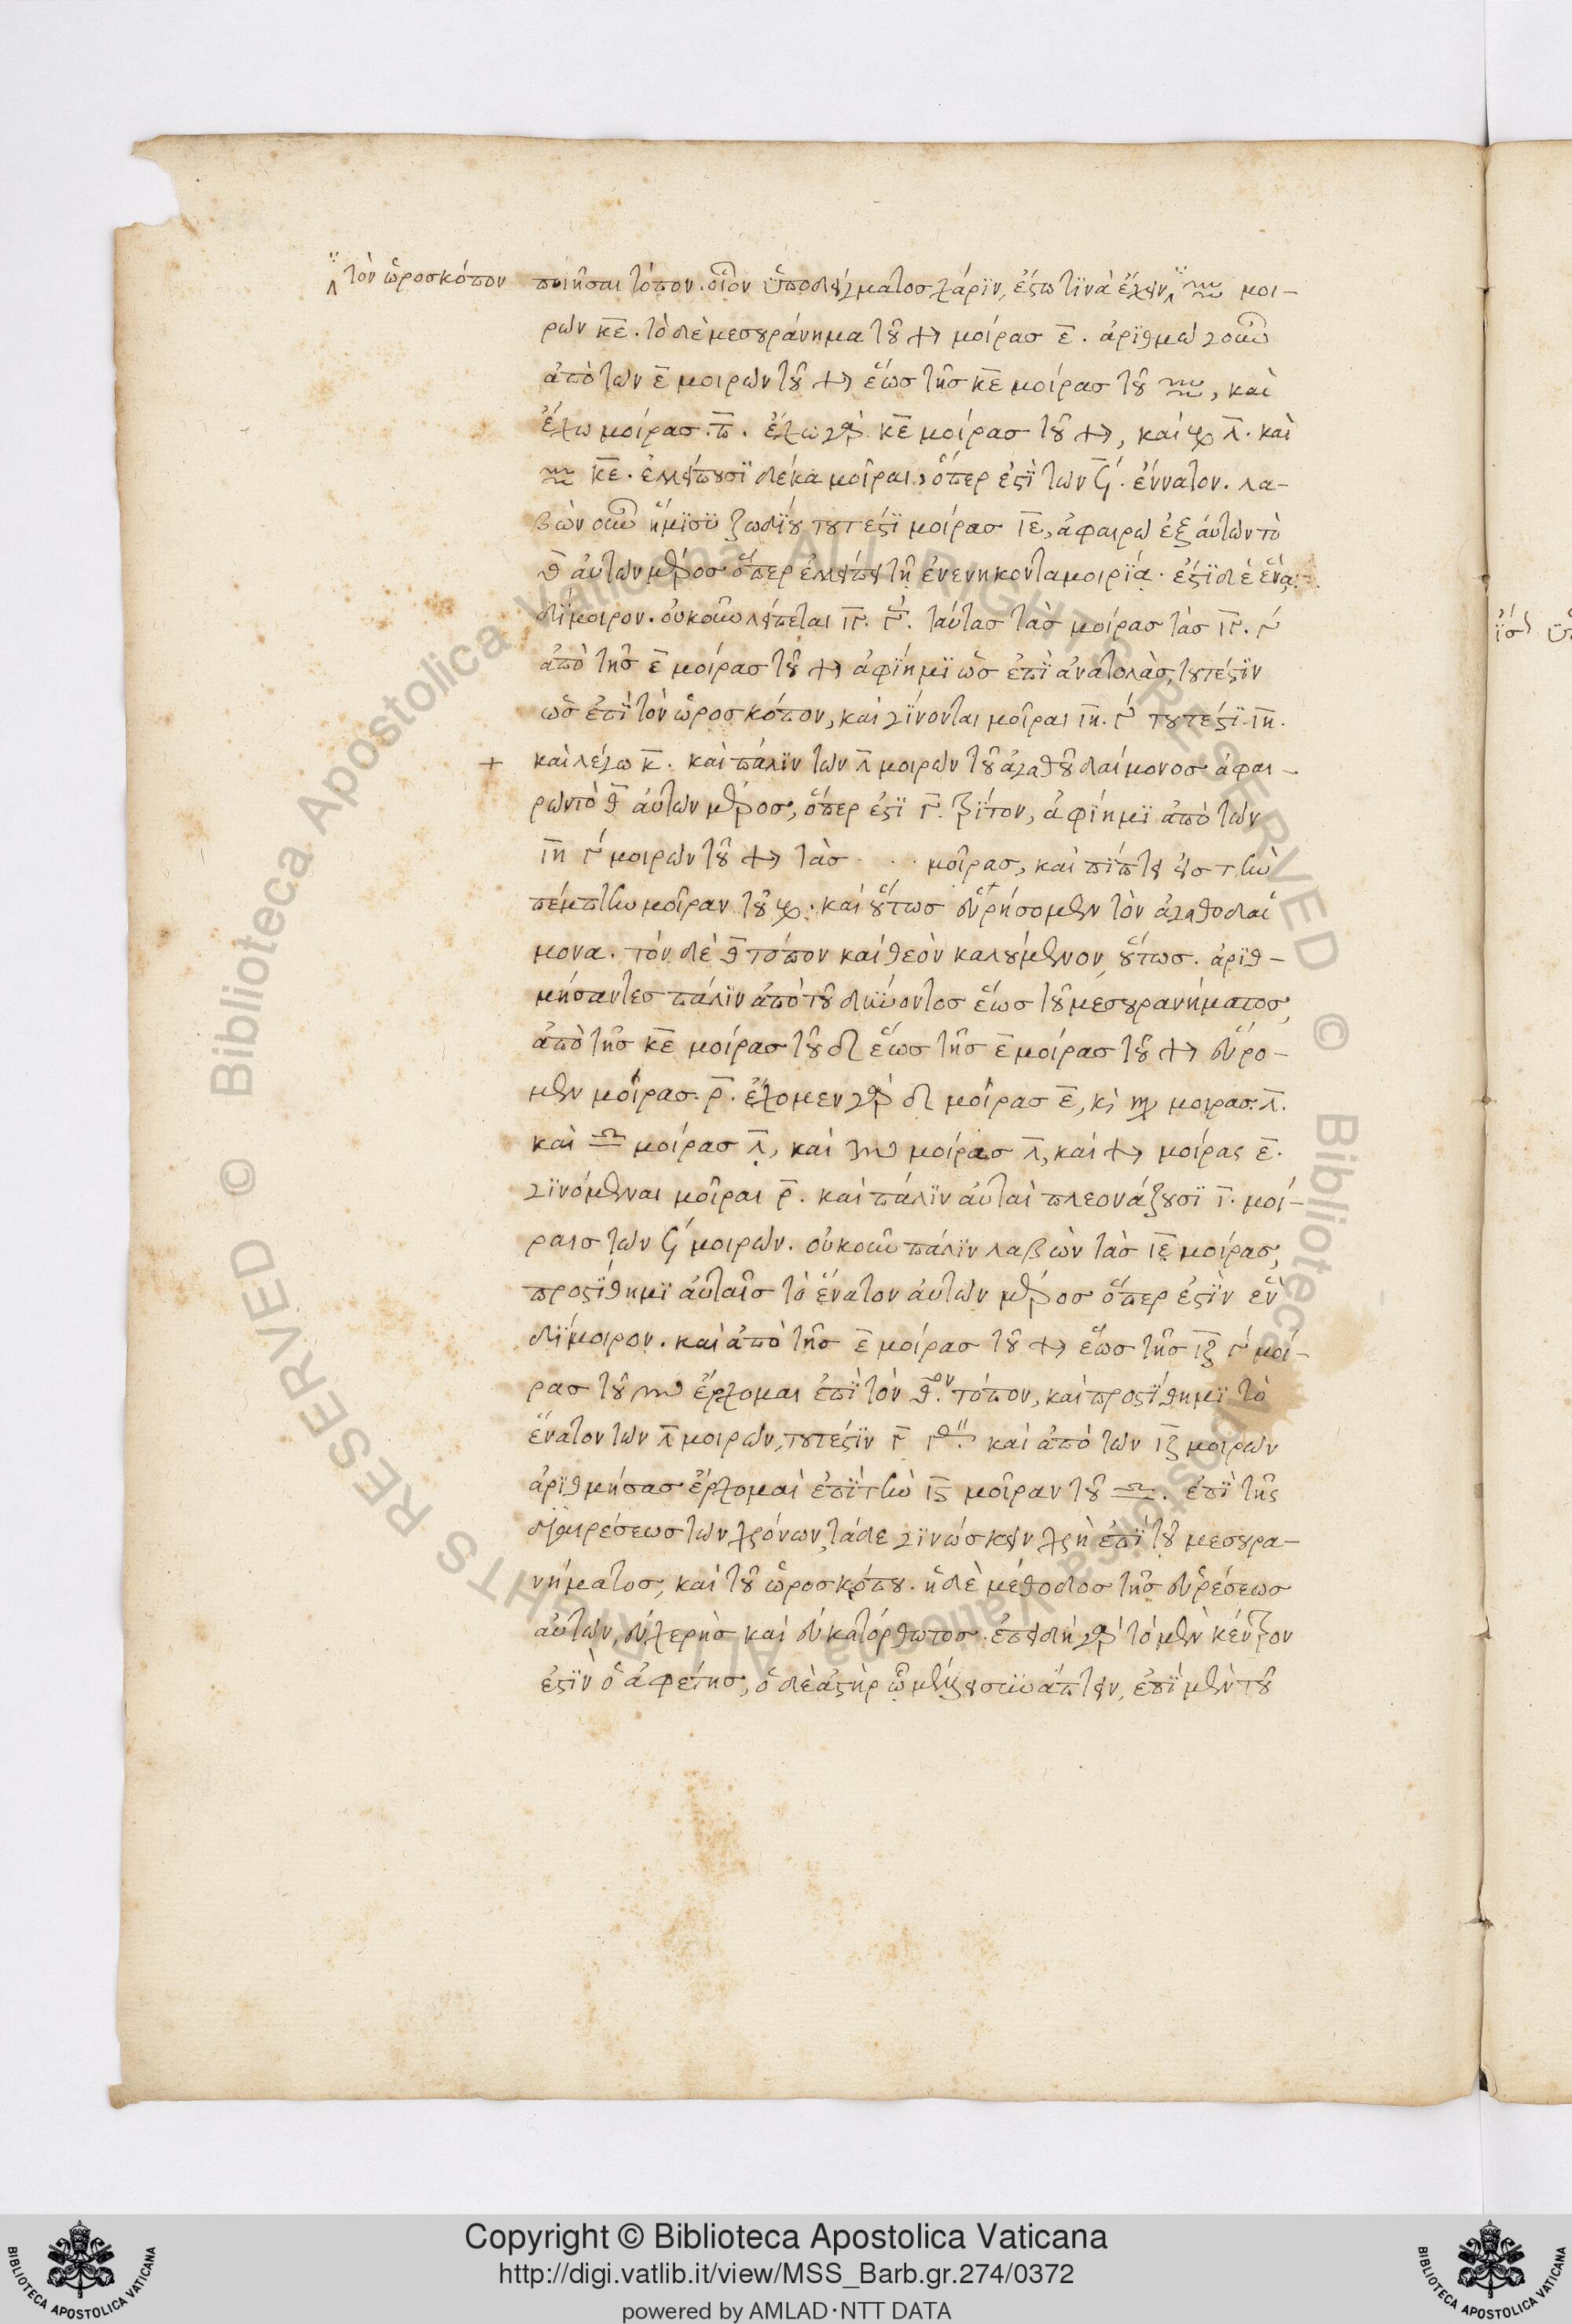 τὸν ὡροσκόπον
ποιῆσαι τόπον. οἷον ὑποδείγματος χάριν, ἔστω τινὰ ἔχειν ♒ μοι-
ρῶν κ̅ε̅. τὸ δὲ μεσουράνημα τοῦ ♐ μοίρας ε̅. ἀριθμῶ γοῦν
ἀπὸ τῶν ε̅ μοιρῶν τοῦ ♐ ἕως τῆς κ̅ε̅ μοίρας τοῦ ♒, καὶ
ἔχω μοίρας. π̅. ἔχω γὰρ κ̅ε̅ μοίρας τοῦ ♐, καὶ ♑ λ̅. καὶ
♒ κ̅ε̅. ἐλλείπουσι δέκα μοῖραι, ὅπερ ἐστὶ τῶν ϟ̅. ἔννατον. λα-
βὼν οὖν ἥμισυ ζωδίου τουτέστι μοίρας ι̅ε̅, ἀφαιρῶ ἐξ αὐτῶν τὸ
θ̅ αὐτῶν μέρος ὅπερ ἐλλείπει τῇ ἐνενηκονταμοιρίᾳ. ἔστι δὲ ἕνα
δίμοιρον. οὐκοῦν λείπεται ι̅γ̅. γ̅. ταύτας τὰς μοίρας τὰς ι̅γ̅. γ
ἀπὸ τῆς ε̅ μοίρας τοῦ ♐ ἀφίημι ὡς ἐπὶ ἀνατολὰς, τουτέστιν
ὡς ἐπὶ τὸν ὡροσκόπον, καὶ γίνονται μοῖραι ι̅η̅. γ τουτέστι. ι̅η̅.
+ καὶ λέγω κ̅. καὶ πάλιν τῶν λ̅ μοιρῶν τοῦ ἀγαθοῦ δαίμονος ἀφαι-
ρῶν τὸ θ̅ αὐτῶν μέρος, ὅπερ ἐστὶ γ̅. τρίτον, ἀφίημι ἀπὸ τῶν
ι̅η̅ γ μοιρῶν τοῦ ♐ τὰς . . . μοίρας, καὶ πίπτει εἰς τὴν
πέμπτην μοῖραν τοῦ ♑. καὶ οὕτως εὑρήσομεν τὸν ἀγαθοδαί
μονα. τὸν δὲ θ̅ τόπον καὶ θεὸν καλούμενον, οὕτως. ἀριθ-
μήσαντες πάλιν ἀπὸ τοῦ δύνοντος ἕως τοῦ μεσουρανήματος,
ἀπὸ τῆς κ̅ε̅ μοίρας τοῦ ♌ ἕως τῆς ε̅ μοίρας τοῦ ♐ εὕρο-
μεν μοίρας. ρ̅. ἔχομεν γὰρ ♌ μοίρας ε̅, κ ♍ μοιρας. λ̅.
καὶ ♎ μοίρας λ̅, καὶ ♏ μοίρας λ̅, καὶ ♐ μοίρας ε̅.
γινόμεναι μοῖραι ρ̅. καὶ πάλιν αὗται πλεονάζουσι ι̅. μοί-
ραις τῶν ϟ μοιρῶν. οὐκοῦν πάλιν λαβὼν τὰς ι̅ε̅ μοίρας,
προστίθημι αὐταῖς τὸ ἔνατον αὐτῶν μέρος ὅπερ ἐστὶν ἓν
δίμοιρον. καὶ ἀπὸ τῆς ε̅ μοίρας τοῦ ♐ ἕως τῆς ι̅ζ̅ γ μοί-
ρας τοῦ ♏ ἔρχομαι ἐπὶ τὸν θ̅ον τόπον, καὶ προστίθημι τὸ
ἔνατον τῶν λ̅ μοιρῶν, τουτέστιν γ̅ καὶ ἀπὸ τῶν ι̅ζ̅ μοιρῶν
ἀριθμήσας ἔρχομαι ἐπὶ τὴν ι̅ϛ̅ μοῖραν τοῦ ♎. ἐπὶ τῆς
διαιρέσεως τῶν χρόνων, τάδε γινώσκειν χρὴ ἐπὶ τοῦ μεσουρα-
νήματος, καὶ τοῦ ὡροσκόπου. ἡ δὲ μέθοδος τῆς εὑρέσεως
αὐτῶν, εὐχερὴς καὶ εὐκατόρθωτος. ἐπειδὴ γὰρ τὸ μὲν κέντρον
ἐστὶν ὁ ἀφέτης, ὁ δὲ ἀστὴρ ἐπὶ μὲν τοῦ
Copyright © Biblioteca Apostolica Vaticana
http://digi.vatlib.it/view/MSS_Barb.gr.274/0372
powered by AMLAD·NTT DATA